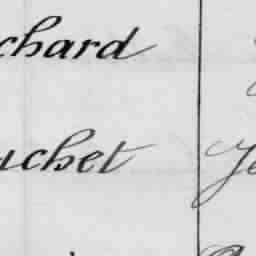 chard
uchet Je